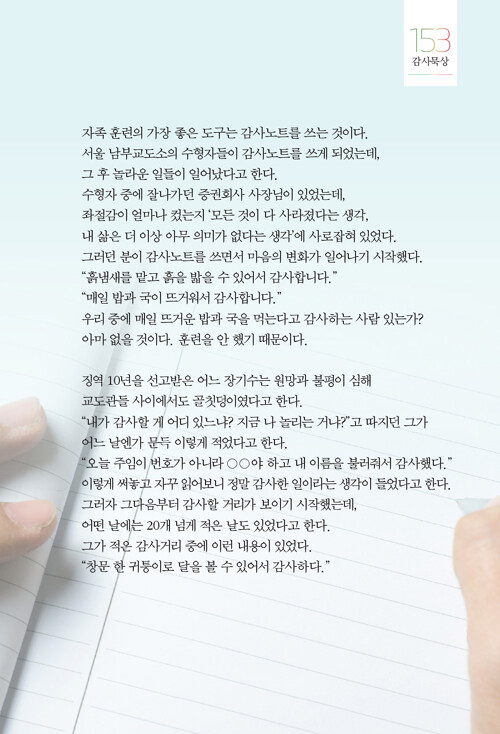 153
감사묵상
자족 훈련의 가장 좋은 도구는 감사노트를 쓰는 것이다.
서울 남부교도소의 수형자들이 감사노트를 쓰게 되었는데,
그 후 놀라운 일들이 일어났다고 한다.
수형자 중에 잘나가던 증권회사 사장님이 있었는데,
좌절감이 얼마나 컸는지 ‘모든 것이 다 사라졌다는 생각,
내 삶은 더 이상 아무 의미가 없다는 생각’에 사로잡혀 있었다.
그러던 분이 감사노트를 쓰면서 마음의 변화가 일어나기 시작했다.
“흙냄새를 맡고 흙을 밟을 수 있어서 감사합니다.”
“매일 밥과 국이 뜨거워서 감사합니다.”
우리 중에 매일 뜨거운 밥과 국을 먹는다고 감사하는 사람 있는가?
아마 없을 것이다. 훈련을 안 했기 때문이다.
징역 10년을 선고받은 어느 장기수는 원망과 불평이 심해
교도관들 사이에서도 골칫덩이였다고 한다.
“내가 감사할 게 어디 있느냐? 지금 나 놀리는 거냐?”고 따지던 그가
어느 날엔가 문득 이렇게 적었다고 한다.
“오늘 주임이 번호가 아니라 ○○야 하고 내 이름을 불러줘서 감사했다.”
이렇게 써놓고 자꾸 읽어보니 정말 감사한 일이라는 생각이 들었다고 한다.
그러자 그다음부터 감사할 거리가 보이기 시작했는데,
어떤 날에는 20개 넘게 적은 날도 있었다고 한다.
그가 적은 감사거리 중에 이런 내용이 있었다.
“창문 한 귀퉁이로 달을 볼 수 있어서 감사하다.”